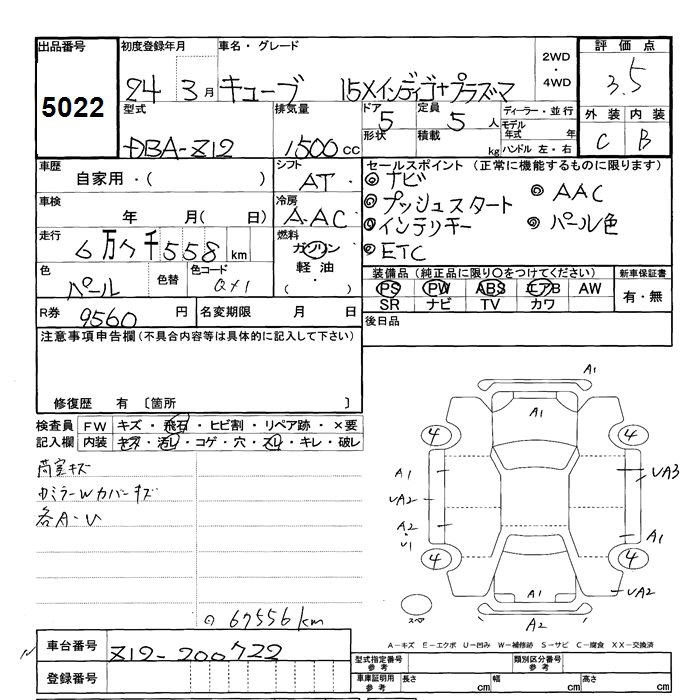 出品番号 初度登録年月 車名・グレード 2WD・4WD 評価点
5022 24 3月 キューブ 15Xインディゴ+プラズマ 3.5
型式 排気量 ドア 5 定員 5人 ディーラー・並行 外装 内装
DBA-Z12 1500cc 形状 積載 kg モデル年式 年 ハンドル 左・右 C B
車歴 シフト セールスポイント(正常に機能するものに限ります)
自家用・( ) AT ◎ナビ ◎AAC
車検 冷房 ◎プッシュスタート
年 月( 日) A.AC ◎インテリキー ◎パール色
走行 燃料 ◎ETC
6万7千558km ガソリン
色 色替 色コード 軽油 装備品(純正品に限り○をつけてください) 新車保証書
パール QX1 ・( ) PS PW ABS エアB AW 有・無
SR ナビ TV カワ
R券 9560円 名変期限 月 日 後日品
注意事項申告欄(不具合内容等は具体的に記入して下さい)
修復歴 有 〔箇所 〕
検査員 FW キズ・飛石・ヒビ割・リペア跡・×要
記入欄 内装 キズ・汚レ・コゲ・穴・スレ・キレ・破レ
荷室キズ
カミラーWカバーキズ
各A・U
67556km
A1
A1
4 4
A1 UA3
UA2
A2・U1 A1
4 4
A1 UA2
スペア A2
A-キズ E-エクボ U-凹み W-補修跡 S-サビ C-腐食 XX-交換済
車台番号 Z12-200722
登録番号
型式指定番号参考 類別区分番号参考
車庫証明用参考 長さ cm 幅 cm 高さ cm